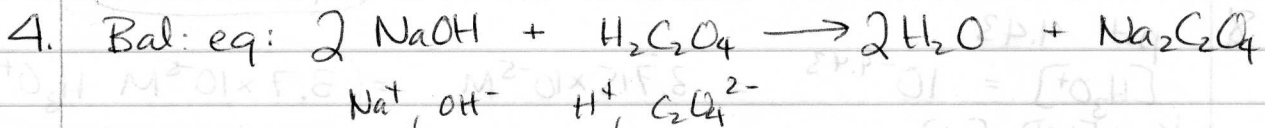 4. Bal: eq: 2 NaOH + H₂C₂O₄ → 2 H₂O + Na₂C₂O₄
Na⁺, OH⁻ H⁺, C₂O₄²⁻